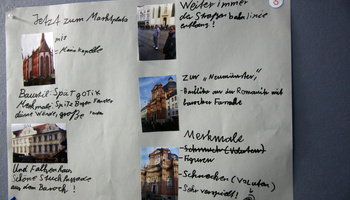 Jetzt zum Marktplatz
mit
Marienkapelle
Baustil: Spätgotik
Merkmale: Spitzbogen
dünne Wände, große
Und Falkenhaus
Schöne Stuckfassade
aus dem Barock!
Weiter immer
der Straßenbahnlinie
entlang!
8
Zur „Neumünster“,
- Basilika aus der Romanik mit
barocker Fassade
Merkmale
- Schmuck (Voluten)
Figuren
- Schnecken (Voluten)
- Sehr verspielt!